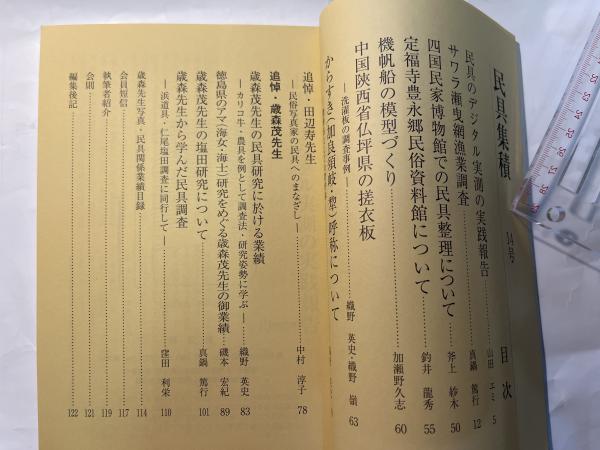 民具集積 14号 目次
民具のデジタル実測の実践報告 山田 エミ 5
サワラ瀬曳網漁業調査 真鍋 篤行 12
四国民家博物館での民具整理について 斧上 紗木 50
定福寺豊永郷民俗資料館について 釣井 龍秀 55
機帆船の模型づくり 加瀬野久志 60
中国陝西省仏坪県の搓衣板
―洗濯板の調査事例― 織野 英史・織野 嶺 63
からすき(加良須岐・犂)呼称について
追悼・田辺寿先生
―民俗写真家の民具へのまなざし― 中村 淳子 78
追悼・歳森茂先生
歳森茂先生の民具研究に於ける業績
―カリコ牛・農具を例として調査法・研究姿勢に学ぶ― 織野 英史 83
徳島県のアマ(海女・海士)研究をめぐる歳森茂先生の御業績 磯本 宏紀 89
歳森茂先生の塩田研究について 真鍋 篤行 101
歳森先生から学んだ民具調査
―浜道具・仁尾塩田調査に同行して― 窪田 利栄 110
歳森先生写真・民具関係業績目録 114
会員短信 117
執筆者紹介 119
会則 121
編集後記 122